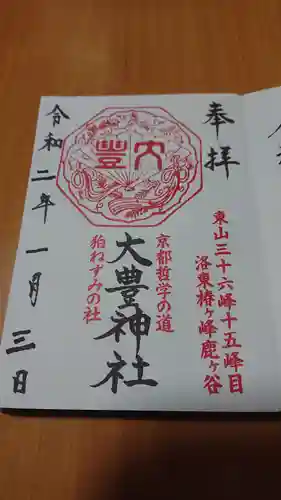 奉拝
東山三十六峰十五峰目
洛東椿ヶ峰鹿ヶ谷
大豊
京都哲学の道
大豊神社
狛ねずみの社
令和二年一月三日